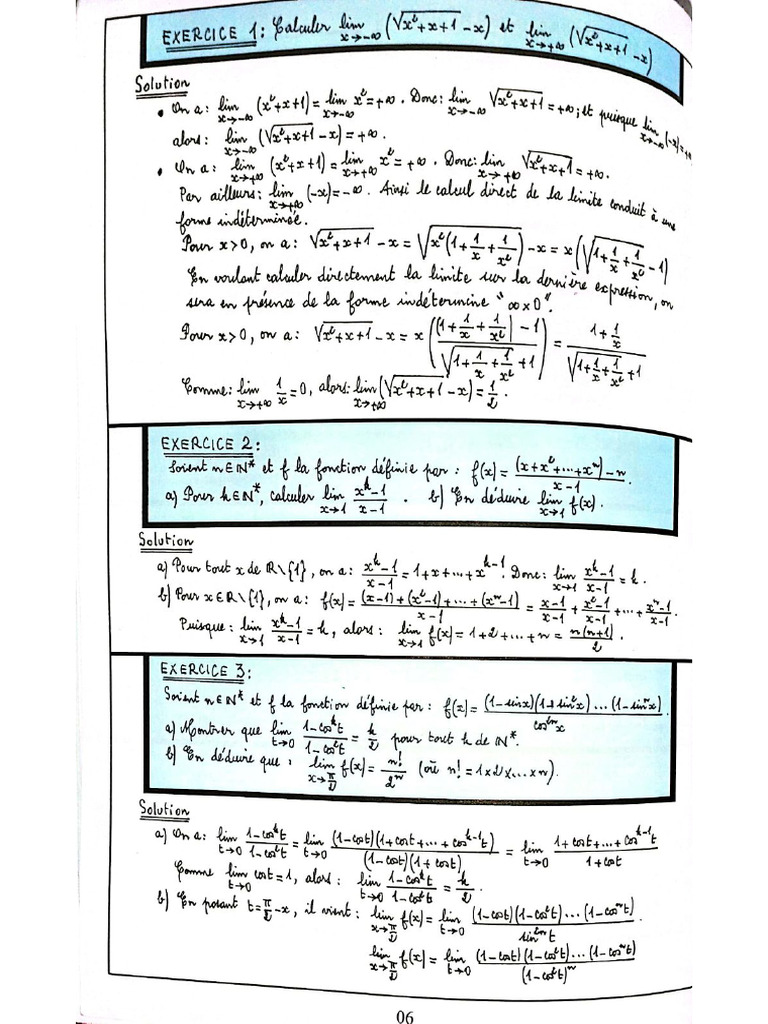 EXERCICE 1 : Calculer lim x→-∞ (√(x²+x+1) - x) et lim x→+∞ (√(x²+x+1) - x)
Solution
• On a : lim x→-∞ (x²+x+1) = lim x→-∞ x² = +∞. Donc : lim x→-∞ √(x²+x+1) = +∞ ; et puisque lim x→-∞ (-x) = +∞
alors : lim x→-∞ (√(x²+x+1) - x) = +∞.
• On a : lim x→+∞ (x²+x+1) = lim x→+∞ x² = +∞. Donc : lim x→+∞ √(x²+x+1) = +∞.
Par ailleurs : lim x→+∞ (-x) = -∞. Ainsi le calcul direct de la limite conduit à une
forme indéterminée.
Pour x>0, on a : √(x²+x+1) - x = √(x²(1+1/x+1/x²)) - x = x(√(1+1/x+1/x²) - 1)
En voulant calculer directement la limite sur la dernière expression, on
sera en présence de la forme indétermine "∞×0".
Pour x>0, on a : √(x²+x+1) - x = x((|1+1/x+1/x²| - 1)/(√(1+1/x+1/x²)+1)) = (1+1/x)/(√(1+1/x+1/x²)+1)
Comme : lim x→+∞ 1/x = 0, alors : lim x→+∞ (√(x²+x+1) - x) = 1/2.
EXERCICE 2 :
Soient n∈ℕ* et f la fonction définie par : f(x) = ((x+x²+...+xⁿ) - n)/(x-1)
a) Pour k∈ℕ*, calculer lim x→1 (xᵏ-1)/(x-1). b) En déduire lim x→1 f(x).
Solution
a) Pour tout x de ℝ\{1}, on a : (xᵏ-1)/(x-1) = 1+x+...+xᵏ⁻¹. Donc : lim x→1 (xᵏ-1)/(x-1) = k.
b) Pour x∈ℝ\{1}, on a : f(x) = ((x-1)+(x²-1)+...+(xⁿ-1))/(x-1) = (x-1)/(x-1) + (x²-1)/(x-1) + ... + (xⁿ-1)/(x-1).
Puisque : lim x→1 (xᵏ-1)/(x-1) = k, alors : lim x→1 f(x) = 1+2+...+n = n(n+1)/2.
EXERCICE 3 :
Soient n∈ℕ* et f la fonction définie par : f(x) = ((1-sinx)(1-sin²x)...(1-sinⁿx))/(cos²ⁿx).
a) Montrer que lim t→0 (1-cosᵏt)/(1-cos²t) = k/2 pour tout k de ℕ*.
b) En déduire que : lim x→π/2 f(x) = n!/2ⁿ (où n! = 1×2×...×n).
Solution
a) On a : lim t→0 (1-cosᵏt)/(1-cos²t) = lim t→0 ((1-cost)(1+cost+...+cosᵏ⁻¹t))/((1-cost)(1+cost)) = lim t→0 (1+cost+...+cosᵏ⁻¹t)/(1+cost)
Comme lim t→0 cost = 1, alors : lim t→0 (1-cosᵏt)/(1-cos²t) = k/2.
b) En posant t = π/2 - x, il vient : lim x→π/2 f(x) = lim t→0 ((1-cost)(1-cos²t)...(1-cosⁿt))/(sin²ⁿt)
lim x→π/2 f(x) = lim t→0 ((1-cost)(1-cos²t)...(1-cosⁿt))/((1-cos²t)ⁿ)
06